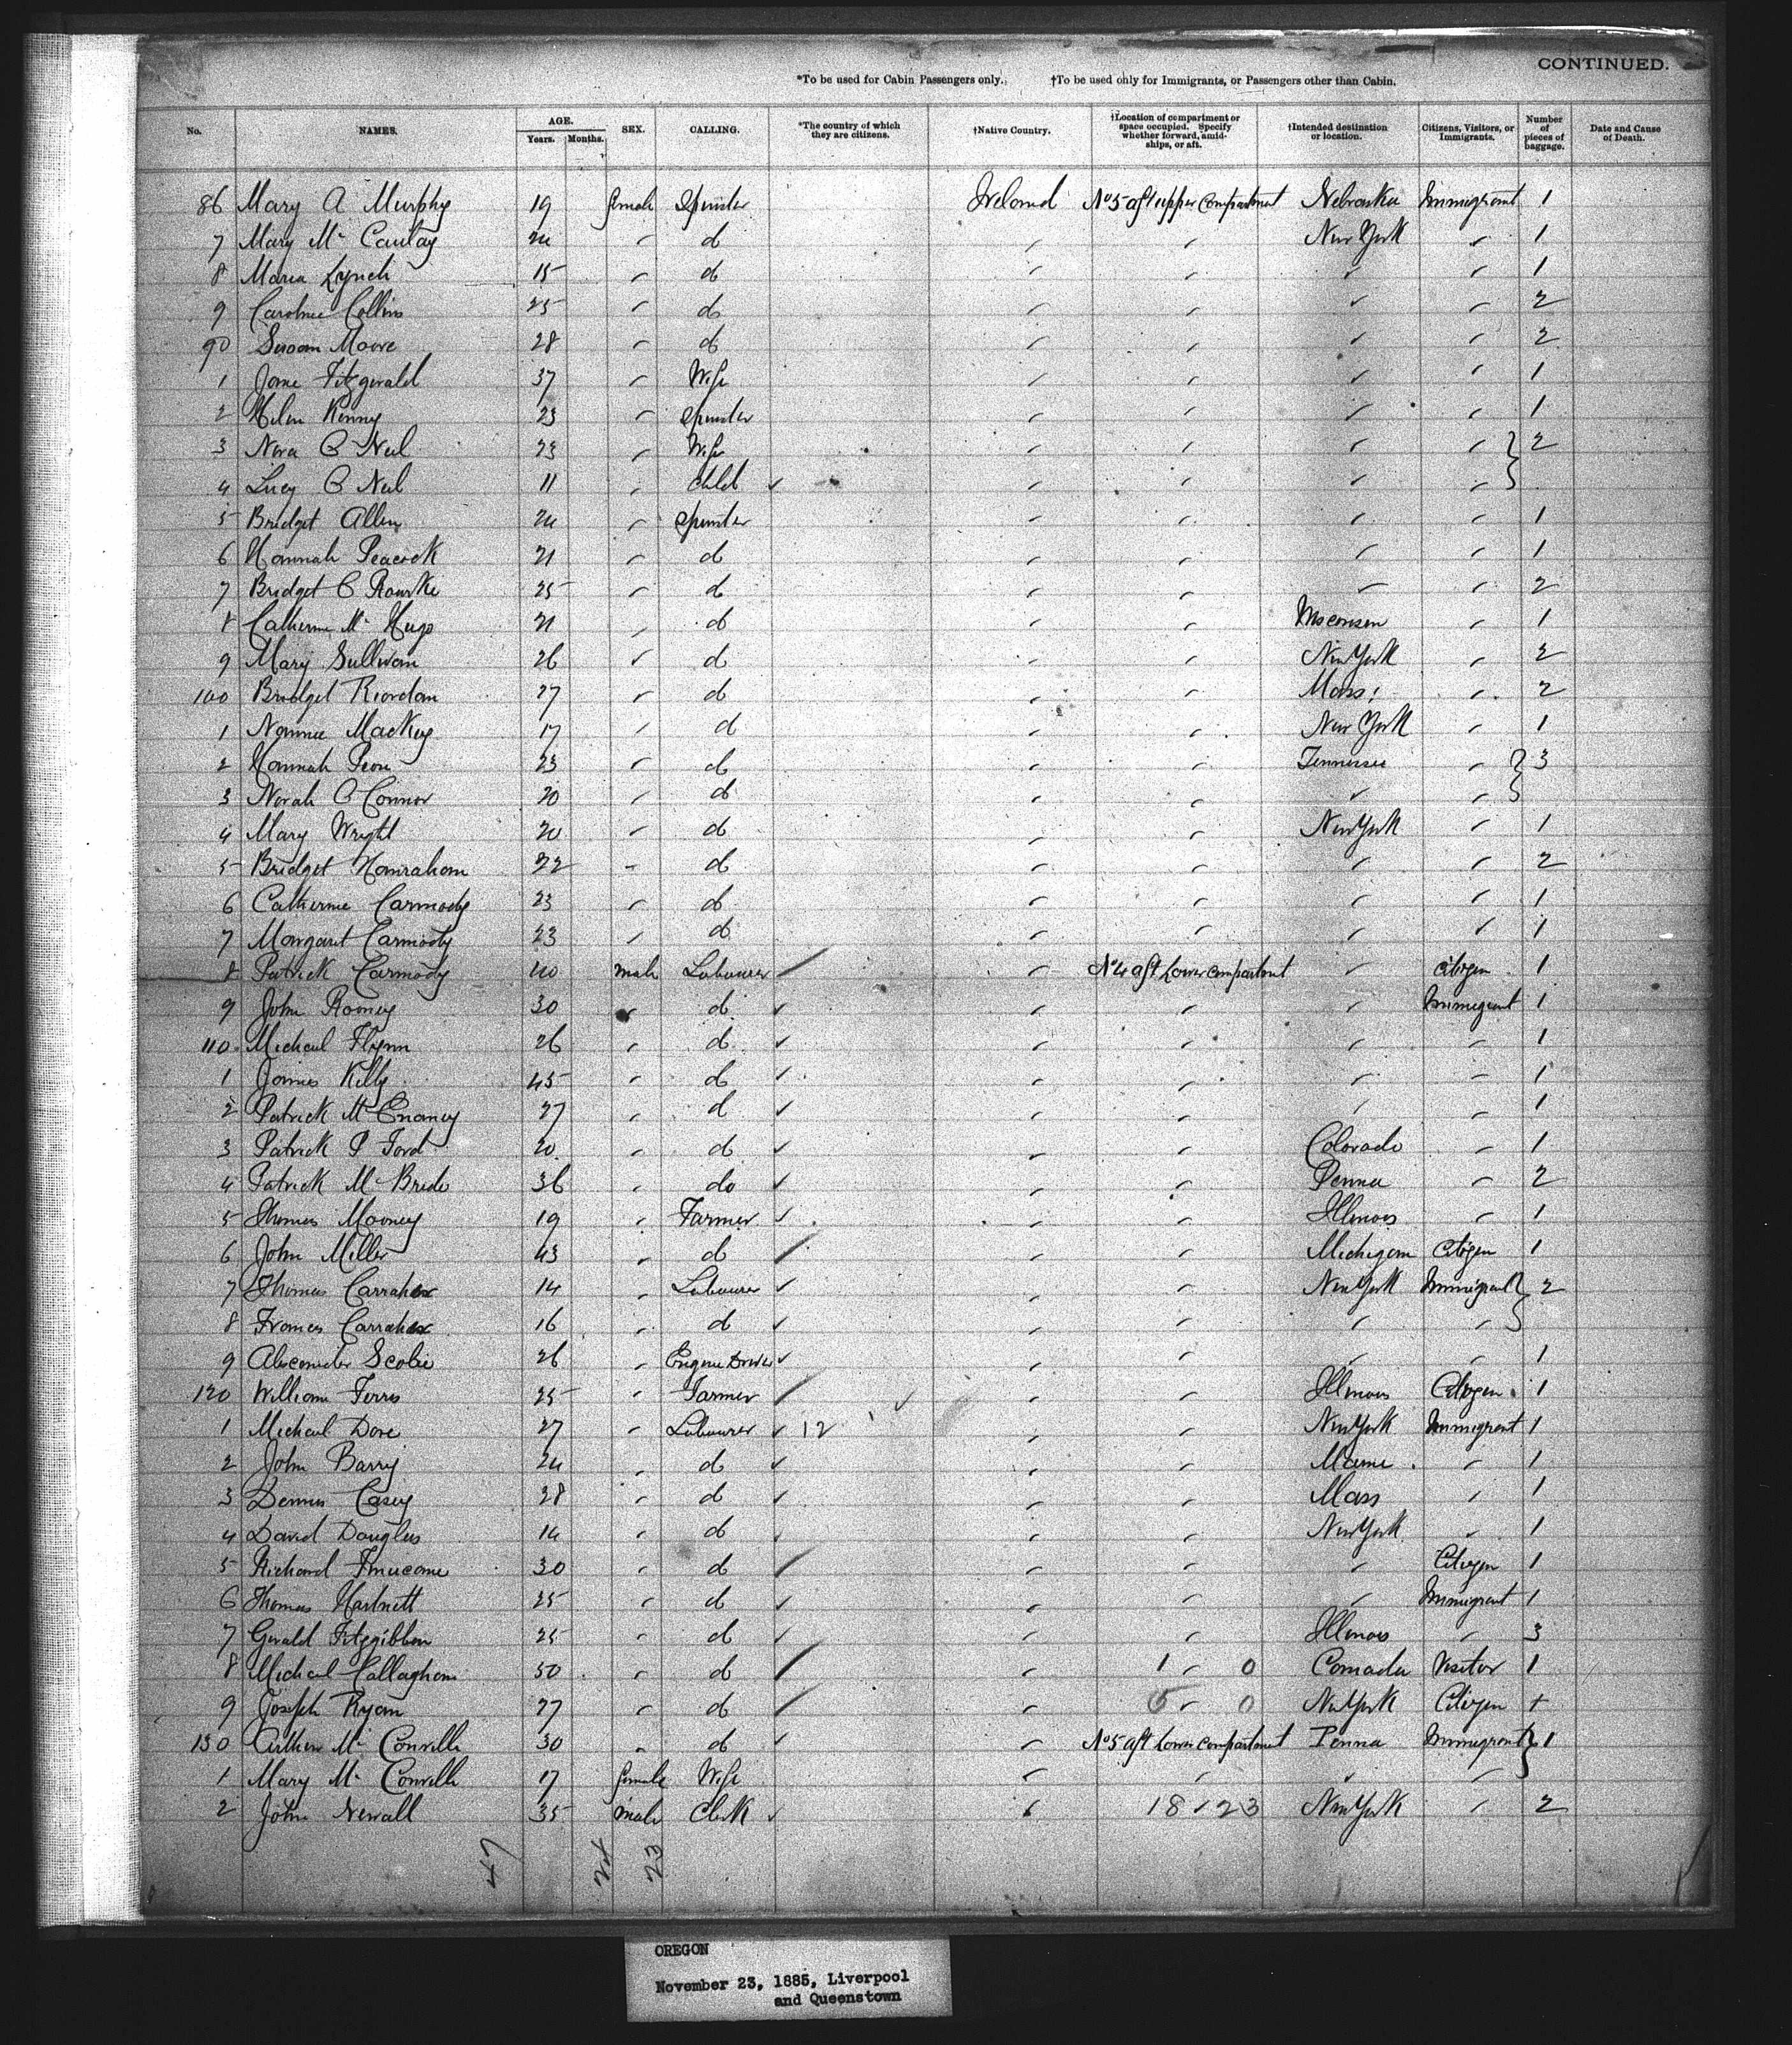 CONTINUED.
*To be used for Cabin Passengers only. †To be used only for Immigrants, or Passengers other than Cabin.
No. NAMES. AGE. Years. Months. SEX. CALLING. *The country of which they are citizens. †Native Country. †Location of compartment or space occupied. Specify whether forward, amid-ships, or aft. †Intended destination or location. Citizens, Visitors, or Immigrants. Number of pieces of baggage. Date and Cause of Death.
86 Mary A Murphy 19 female Spinster Ireland No 5 aft upper Compartment Nebraska Immigrant 1
7 Mary Mc Caulay 24 " d " " New York " 1
8 Maria Lynch 15 " d " " " " 1
9 Caroline Collins 25 " d " " " " 2
90 Susan Moore 28 " d " " " " 2
1 Jane Fitzgerald 37 " Wife " " " " 1
2 Helen Kenny 23 " Spinster " " " " 1
3 Nora O Neil 23 " Wife " " " " } 2
4 Lucy O Neil 11 " Child ✓ " " " " }
5 Bridget Allen 24 " Spinster " " " " 1
6 Hannah Peacock 21 " d " " " " 1
7 Bridget O Rourke 25 " d " " " " 2
8 Catherine Mc Hugo 21 " d " " Wisconsin " 1
9 Mary Sullivan 26 " d " " New York " 2
100 Bridget Riordan 27 " d " " Mass: " 2
1 Nannie Mackey 17 " d " " New York " 1
2 Hannah 23 " d " " Tennessee " } 3
3 Norah O Connor 20 " d " " " " }
4 Mary Wright 20 " d " " New York " 1
5 Bridget Hanrahan 22 " d " " " " 2
6 Catherine Carmody 23 " d " " " " 1
7 Margaret Carmody 23 " d " " " " 1
8 Patrick Carmody 40 male Labourer / " No 4 aft Lower Compartment " Citizen 1
9 John Rooney 30 " d ✓ " " " Immigrant 1
110 Michael Flynn 26 " d ✓ " " " " 1
1 James Kelly 45 " d ✓ " " " " 1
2 Patrick Mc Enaney 27 " d ✓ " " " " 1
3 Patrick P Ford 20 " d ✓ " " Colorado " 1
4 Patrick Mc Bride 36 " do ✓ " " Penna " 2
5 Thomas Mooney 19 " Farmer ✓ " " Illinois " 1
6 John Miller 43 " d / " " Michigan Citizen 1
7 Thomas Carraher 14 " Labourer ✓ " " New York Immigrant } 2
8 Frances Carraher 16 " d ✓ " " " " }
9 Alexander Scobie 26 " Engine Driver ✓ " " " " 1
120 William Ferris 25 " Farmer / " " Illinois Citizen 1
1 Michael Dore 27 " Labourer ✓ 12 " " New York Immigrant 1
2 John Barry 24 " d ✓ " " Maine " 1
3 Dennis Casey 28 " d ✓ " " Mass " 1
4 David Douglas 14 " d ✓ " " New York " 1
5 Richard Finucane 30 " d / " " " Citizen 1
6 Thomas Hartnett 25 " d ✓ " " " Immigrant 1
7 Gerald Fitzgibbon 25 " d ✓ " " Illinois " 3
8 Michael Callaghan 50 " d / " 1 " 0 Canada Visitor 1
9 Joseph Ryan 27 " d / " 5 " 0 New York Citizen 1
130 Arthur Mc Conville 30 " d ✓ " No 5 aft Lower Compartment Penna Immigrant } 1
1 Mary Mc Conville 17 female Wife " " " " }
2 John Newall 35 male Clerk ✓ " 18 " 23 New York " 2
OREGON
November 23, 1885, Liverpool
and Queenstown